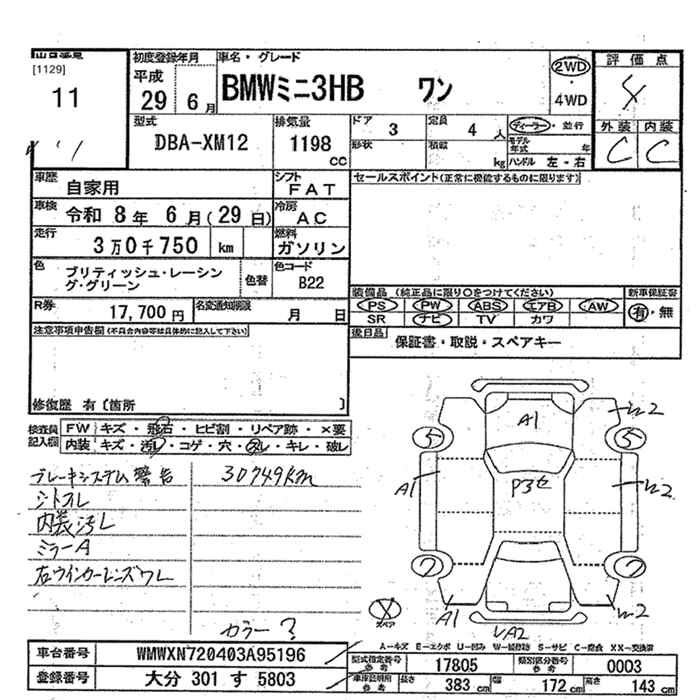 [1129]
11
初度登録年月
平成
29 6月
車名・グレード
BMWミニ3HB ワン
2WD
・
4WD
評価点
外装 内装
C C
型式
DBA-XM12
排気量
1198
CC
ドア 3
定員 4 人
形状
積載 kg
ディーラー・並行
モデル年式 年
ハンドル 左・右
車歴 自家用
シフト FAT
車検 令和 8年 6月(29日)
冷房 AC
走行 3万0千750 km
燃料 ガソリン
色 ブリティッシュ・レーシン
グ・グリーン
色替
色コード B22
R券 17,700円
名変通知期限 月 日
セールスポイント(正常に機能するものに限ります)
装備品 (純正品に限り○をつけてください)
PS PW ABS エアB AW
SR ナビ TV カワ
新車保証書
有・無
後日品 保証書・取説・スペアキー
注意事項申告欄(不具合内容等は具体的に記入して下さい)
修復歴 有〔箇所 〕
検査員記入欄
FW キズ・飛石・ヒビ割・リペア跡・×要
内装 キズ・汚レ・コゲ・穴・スレ・キレ・破レ
ブレーキシステム警告 30749km
シトスレ
内装汚レ
ミラーA
右ウインカーレンズワレ
カラー?
A1
P3セ
A1
A1
5
5
7
7
スペア
A-キズ E-エクボ U-凹み W-補修跡 S-サビ C-腐食 XX-交換済
車台番号 WMWXN720403A95196
登録番号 大分 301 す 5803
型式指定番号 参考 17805
類別区分番号 参考 0003
車庫証明用 参考
長さ 383 cm
幅 172 cm
高さ 143 cm